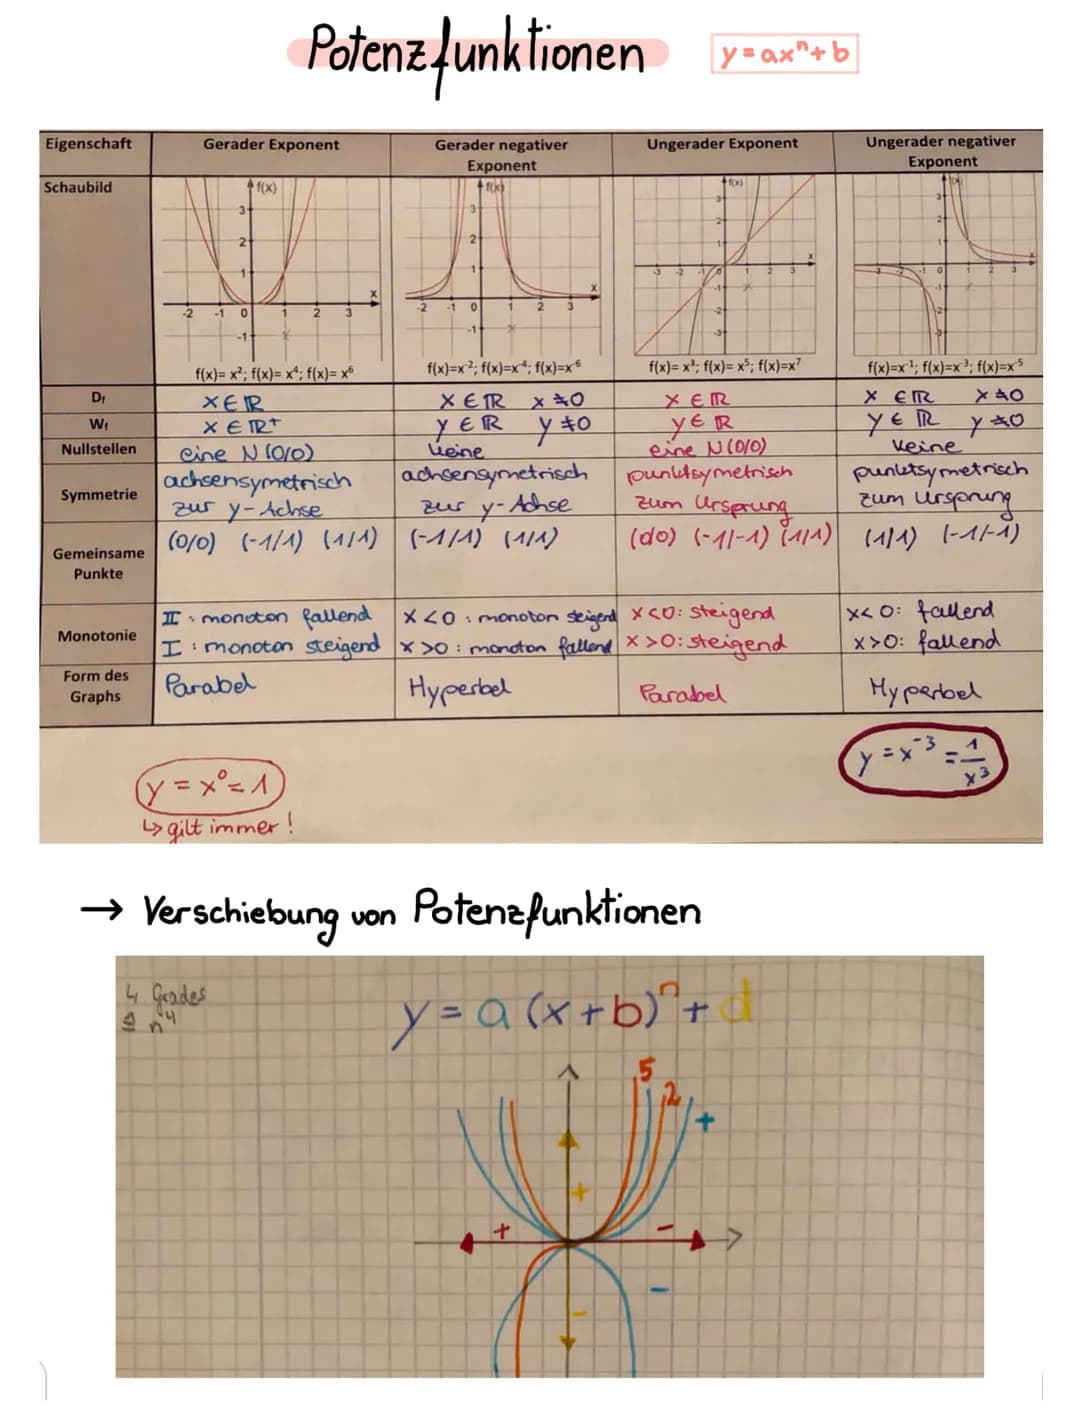 Potenzfunktionen
y=axⁿ+b
Eigenschaft
Gerader Exponent
Gerader negativer
Exponent
Ungerader Exponent
Ungerader negativer
Exponent
Schaubild
f(x)
3
2
1
-2 -1 0 1 2 3
-1
x
f(x)= x²; f(x)= x⁴; f(x)= x⁶
f(x)
3
2
1
-2 -1 0 1 2 3
-1
x
f(x)=x⁻²; f(x)=x⁻⁴; f(x)=x⁻⁶
f(x)
3
2
1
-3 -2 -1 0 1 2 3
-1
-2
-3
x
f(x)= x³; f(x)= x⁵; f(x)=x⁷
3
2
1
-3 -2 -1 0 1 2 3
-1
-2
-3
x
f(x)=x⁻¹; f(x)=x⁻³; f(x)=x⁻⁵
Df
x∈ℝ
x∈ℝ x≠0
x∈ℝ
x ∈ℝ x≠0
Wf
x∈ℝ+
y∈ℝ y≠0
y∈ℝ
y∈ℝ y≠0
Nullstellen
eine N(0/0)
keine
eine N(0/0)
keine
Symmetrie
achsensymetrisch
zur y-Achse
achsensymetrisch
zur y-Achse
punktsymetrisch
zum Ursprung
punktsymetrisch
zum Ursprung
Gemeinsame
Punkte
(0/0) (-1/1) (1/1)
(-1/1) (1/1)
(0/0) (-1/-1) (1/1)
(1/1) (-1/-1)
Monotonie
II : monoton fallend
I : monoton steigend
x<0 : monoton steigend
x>0 : monoton fallend
x<0: steigend
x>0: steigend
x<0: fallend
x>0: fallend
Form des
Graphs
Parabel
Hyperbel
Parabel
Hyperbel
y=x⁰=1
↳ gilt immer!
y=x⁻³=1/x³
→ Verschiebung von Potenzfunktionen
4 Grades
≙ n⁴
y=a(x+b)ⁿ+d
5
2
+
+
+
-
-
-